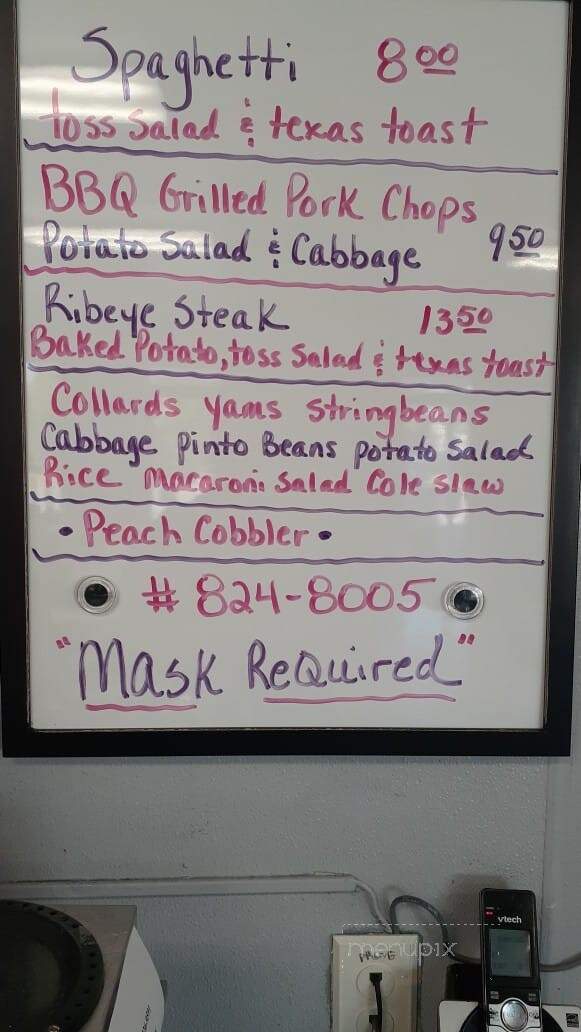 Spaghetti 8.00
toss Salad & texas toast
BBQ Grilled Pork Chops
Potato Salad & Cabbage 9.50
Ribeye Steak 13.50
Baked Potato, toss Salad & texas toast
Collards yams stringbeans
Cabbage pinto Beans potato Salad
Rice Macaroni Salad Cole Slaw
• Peach Cobbler •
# 824-8005
"Mask Required"
vtech
menupix